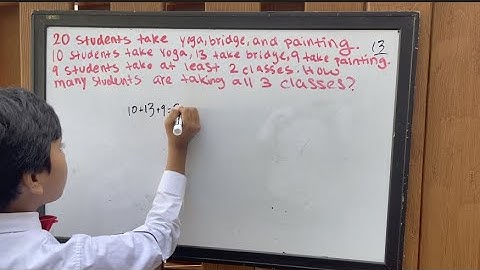 20 students take yoga, bridge, and painting.
10 students take yoga, 13 take bridge, 9 take painting.
9 students take at least 2 classes. How
many students are taking all 3 classes?
13
10+13+9=